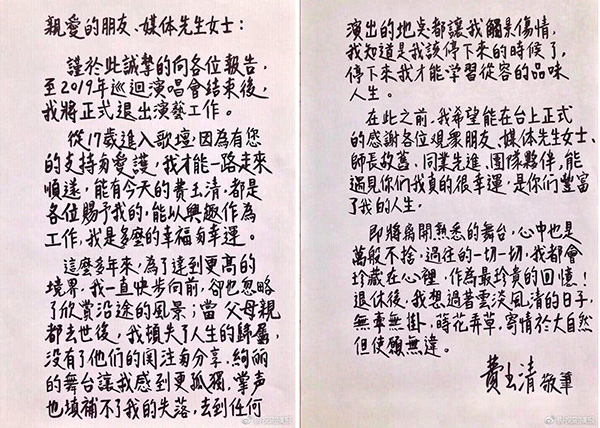 親愛的朋友、媒体先生女士：
謹於此誠摯的向各位報告，
至2019年巡迴演唱會結束後，
我將正式退出演藝工作。
從17歲進入歌壇，因為有您
的支持與愛護，我才能一路走來
順遂，能有今天的費玉清，都是
各位賜予我的，能以興趣作為
工作，我是多麼的幸福與幸運。
這麼多年來，為了達到更高的
境界，我一直快步向前，卻也忽略
了欣賞沿途的風景；當父母親
都去世後，我頓失了人生的歸屬，
沒有了他們的関注與分享，絢麗
的舞台讓我感到更孤獨，掌声
也填補不了我的失落，去到任何
演出的地點都讓我觸景傷情，
我知道是我該停下來的時候了，
停下來我才能學習從容的品味
人生。
在此之前，我希望能在台上正式
的感謝各位观衆朋友、媒体先生女士、
師長故舊、同業先進、團隊夥伴，能
遇見你們我真的很幸運，是你們豐富
了我的人生。
即將离開熟悉的舞台，心中也是
萬般不捨，過往的一切一切，我都會
珍藏在心裡，作為最珍貴的回憶！
退休後，我想過著雲淡風清的日子，
無牽無掛，蒔花弄草，寄情於大自然
但使願無違。
費玉清 敬筆